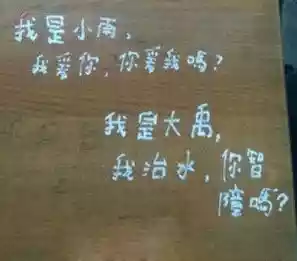 我是小雨,
我爱你,你爱我吗?
我是大禹,
我治水,你智
障吗?